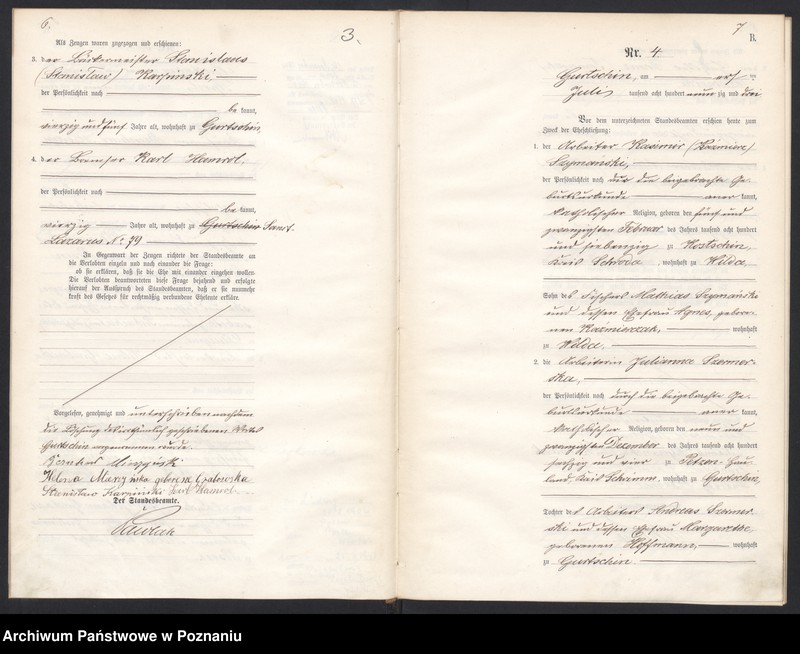 6.
3.
Als Zeugen waren zugezogen und erschienen:
3. der Bäckermeister Stanislaus
(Stanisław) Karpinski,
der Persönlichkeit nach
be kannt,
vierzig und fünf Jahre alt, wohnhaft zu Gurtschin,
4. der Bremser Karl Hamrol.
der Persönlichkeit nach
be kannt,
vierzig Jahre alt, wohnhaft zu Gurtschin Sanct
Lazarus No
In Gegenwart der Zeugen richtete der Standesbeamte an
die Verlobten einzeln und nach einander die Frage:
ob sie erklären, daß sie die Ehe mit einander eingehen wollen.
Die Verlobten beantworteten diese Frage bejahend und erfolgte
hierauf der Ausspruch des Standesbeamten, daß er sie nunmehr
kraft des Gesetzes für rechtmäßig verbundene Eheleute erkläre.
Vorgelesen, genehmigt und unterschrieben nachdem
die Löschung des geschriebenen Wortes
Gurtschin vorgenommen wurde.
geborene Grabowska
Stanisław Karpinski Karl Hamrol
Der Standesbeamte.
7
B.
Nr. 4
Gurtschin, am ersten
Juli tausend acht hundert neun zig und drei
Vor dem unterzeichneten Standesbeamten erschien heute zum
Zweck der Eheschließung:
1. der Arbeiter Kasimir (Kaźmierz)
Szymański,
der Persönlichkeit nach durch die beigebrachte Ge-
burtsurkunde aner kannt,
katholischer Religion, geboren den fünf und
zwanzigsten Februar des Jahres tausend acht hundert
und siebenzig zu Kostschin,
Kreis Schroda, wohnhaft zu Wilda,
Sohn des Fischers Mathias Szymański
und dessen Ehefrau Agnes, gebore-
nen Kaźmierczak, wohnhaft
zu Wilda.
2. die Arbeiterin Julianna Szermer-
ska,
der Persönlichkeit nach durch die beigebrachte Ge-
burtsurkunde aner kannt,
katholischer Religion, geboren den neun und
zwanzigsten Dezember des Jahres tausend acht hundert
sechzig und vier zu Hau-
land, Kreis Schrimm, wohnhaft zu Gurtschin,
Tochter des Arbeiters Andreas Szermer-
ski und dessen Ehefrau Margarethe,
geborenen Hoffmann, wohnhaft
zu Gurtschin
Archiwum Państwowe w Poznaniu